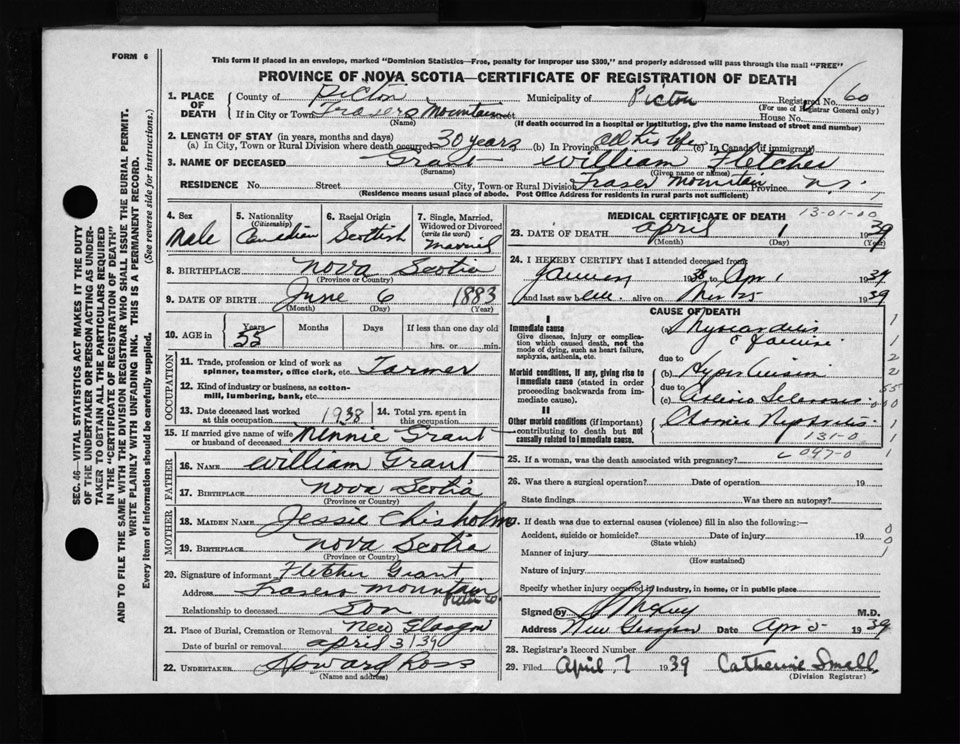 FORM 6
This form if placed in an envelope, marked "Dominion Statistics—Free, penalty for improper use $300," and properly addressed will pass through the mail "FREE"
PROVINCE OF NOVA SCOTIA—CERTIFICATE OF REGISTRATION OF DEATH
1. PLACE OF DEATH
County of Pictou Municipality of Pictou Registered No. 60
(For use of Registrar General only)
If in City or Town Frasers Mountain Street House No.
(Name) (If death occurred in a hospital or institution, give the name instead of street and number)
2. LENGTH OF STAY (in years, months and days)
(a) In City, Town or Rural Division where death occurred 30 years (b) In Province all his life (c) In Canada (if immigrant)
3. NAME OF DECEASED Grant William Fletcher
(Surname) (Given name or names)
RESIDENCE No. Street City, Town or Rural Division Fraser Mountain Province N.S.
(Residence means usual place of abode. Post Office Address for residents in rural parts not sufficient) 1
4. Sex Male
5. Nationality (Citizenship) Canadian
6. Racial Origin Scottish
7. Single, Married, Widowed or Divorced (write the word) Married
8. BIRTHPLACE Nova Scotia
(Province or Country)
9. DATE OF BIRTH June 6 1883
(Month) (Day) (Year)
10. AGE in Years 55 Months Days If less than one day old
hrs. or min.
OCCUPATION
11. Trade, profession or kind of work as spinner, teamster, office clerk, etc. Farmer
12. Kind of industry or business, as cotton-mill, lumbering, bank, etc.
13. Date deceased last worked at this occupation 1938
14. Total yrs. spent in this occupation
15. If married give name of wife or husband of deceased Minnie Grant
FATHER
16. NAME William Grant
17. BIRTHPLACE Nova Scotia
(Province or Country)
MOTHER
18. MAIDEN NAME Jessie Chisholm
19. BIRTHPLACE Nova Scotia
(Province or Country)
20. Signature of informant Fletcher Grant
Address Frasers Mountain Pictou Co.
Relationship to deceased Son
21. Place of Burial, Cremation or Removal New Glasgow
Date of burial or removal April 3/39
22. UNDERTAKER Howard Ross
(Name and address)
MEDICAL CERTIFICATE OF DEATH 13-01-00
23. DATE OF DEATH April 1 1939
(Month) (Day) (Year)
24. I HEREBY CERTIFY that I attended deceased from
January 1938 to Apr 1 1939
and last saw alive on 1939
CAUSE OF DEATH
I
Immediate cause
Give disease, injury or complication which caused death, not the mode of dying, such as heart failure, asphyxia, asthenia, etc.
(a) Myocarditis
due to
Morbid conditions, if any, giving rise to immediate cause (stated in order proceeding backwards from immediate cause).
(b) Hypertension
due to
(c) Arterio Sclerosis
II
Other morbid conditions (if important) contributing to death but not causally related to immediate cause.
Chronic Nephritis
131-0
25. If a woman, was the death associated with pregnancy? 097-0
26. Was there a surgical operation? Date of operation 19
State findings Was there an autopsy?
27. If death was due to external causes (violence) fill in also the following:—
Accident, suicide or homicide? Date of injury 19
(State which)
Manner of injury
(How sustained)
Nature of injury
Specify whether injury occurred in industry, in home, or in public place
Signed by M.D.
Address New Glasgow Date Apr 1939
28. Registrar's Record Number
29. Filed April 7 1939 Catherine Small
(Division Registrar)
SEC. 46—VITAL STATISTICS ACT MAKES IT THE DUTY
OF THE UNDERTAKER OR PERSON ACTING AS UNDER-
TAKER TO OBTAIN ALL THE PARTICULARS REQUIRED
IN THE "CERTIFICATE OF REGISTRATION OF DEATH"
AND TO FILE THE SAME WITH THE DIVISION REGISTRAR WHO SHALL ISSUE THE BURIAL PERMIT.
WRITE PLAINLY WITH UNFADING INK. THIS IS A PERMANENT RECORD.
Every item of information should be carefully supplied. (See reverse side for instructions.)